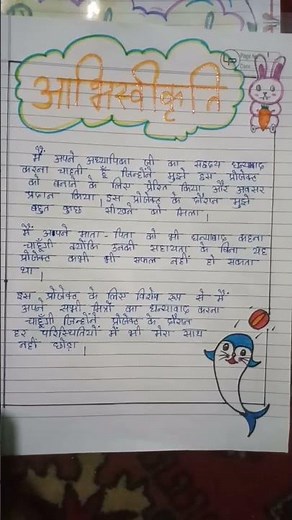 आभिस्वीकृति
मैं अपने अध्यापिका जी का सहृदय धन्यवाद
करना चाहती हूँ जिन्होंने मुझे इस प्रोजेक्ट
को बनाने के लिए प्रेरित किया और अवसर
प्रदान किया। इस प्रोजेक्ट के दौरान मुझे
बहुत कुछ सीखने को मिला।
मैं अपने माता - पिता को भी धन्यवाद कहना
चाहूँगी क्योंकि उनकी सहायता के बिना यह
प्रोजेक्ट कभी भी सफल नहीं हो सकता
था।
इस प्रोजेक्ट के लिए विशेष रूप से मैं
अपने सभी मित्रों का धन्यवाद करना
चाहूँगी जिन्होंने प्रोजेक्ट के दौरान
हर परिस्थितियों में भी मेरा साथ
नहीं छोड़ा।